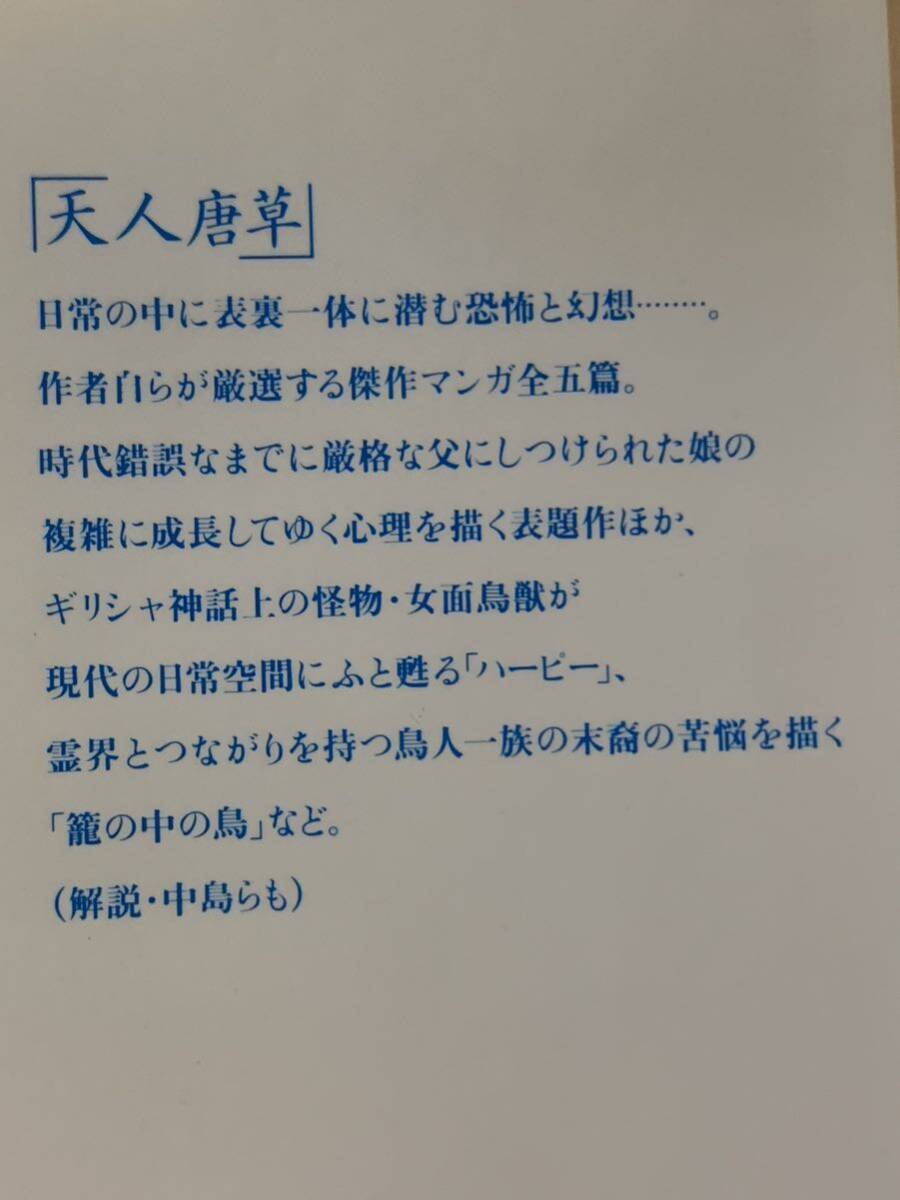 「天人唐草」
日常の中に表裏一体に潜む恐怖と幻想………。
作者自らが厳選する傑作マンガ全五篇。
時代錯誤なまでに厳格な父にしつけられた娘の
複雑に成長してゆく心理を描く表題作ほか、
ギリシャ神話上の怪物・女面鳥獣が
現代の日常空間にふと甦る「ハーピー」、
霊界とつながりを持つ鳥人一族の末裔の苦悩を描く
「籠の中の鳥」など。
(解説・中島らも)